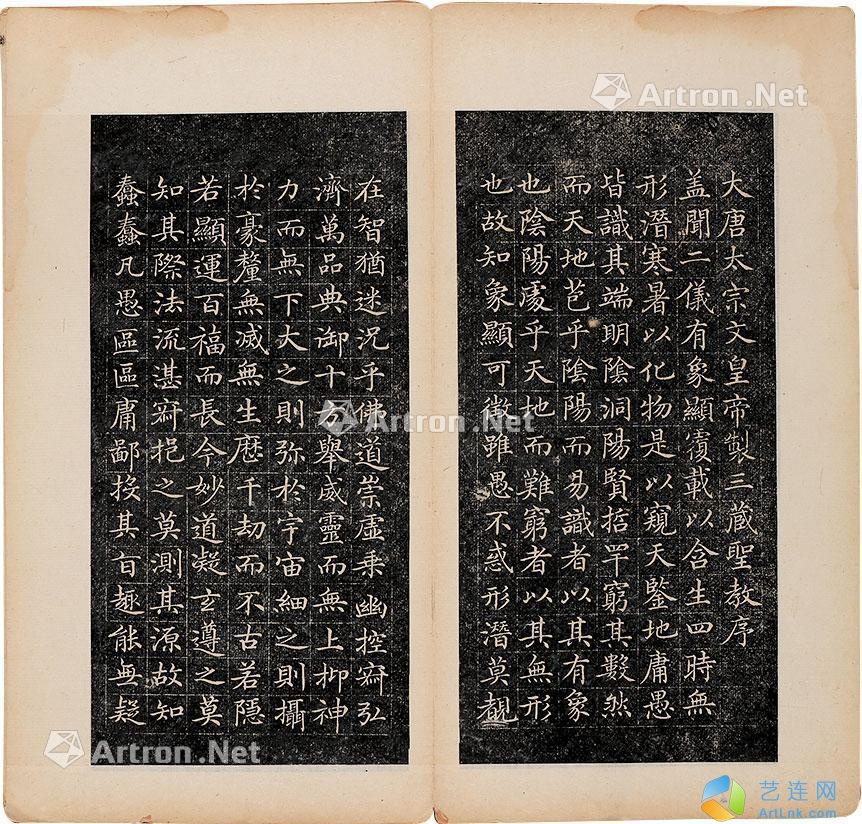 大唐太宗文皇帝製三蔵聖教序
盖聞二儀有象顯覆載以含生四時無
形潛寒暑以化物是以窺天鑒地庸愚
皆識其端明陰洞陽賢哲罕窮其數然
而天地苞乎陰陽而易識者以其有象
也陰陽處乎天地而難窮者以其無形
也故知象顯可徵雖愚不惑形潛莫覩
在智猶迷況乎佛道崇虛乗幽控寂弘
濟萬品典御十方舉威靈而無上抑神
力而無下大之則弥於宇宙細之則攝
於豪釐無滅無生歷千劫而不古若隱
若顯運百福而長今妙道凝玄遵之莫
知其際法流湛寂挹之莫測其源故知
蠢蠢凡愚區區庸鄙投其旨趣能無疑
Artron.Net
Artron.Net
Artron.Net
艺连网
ArtLnk.com